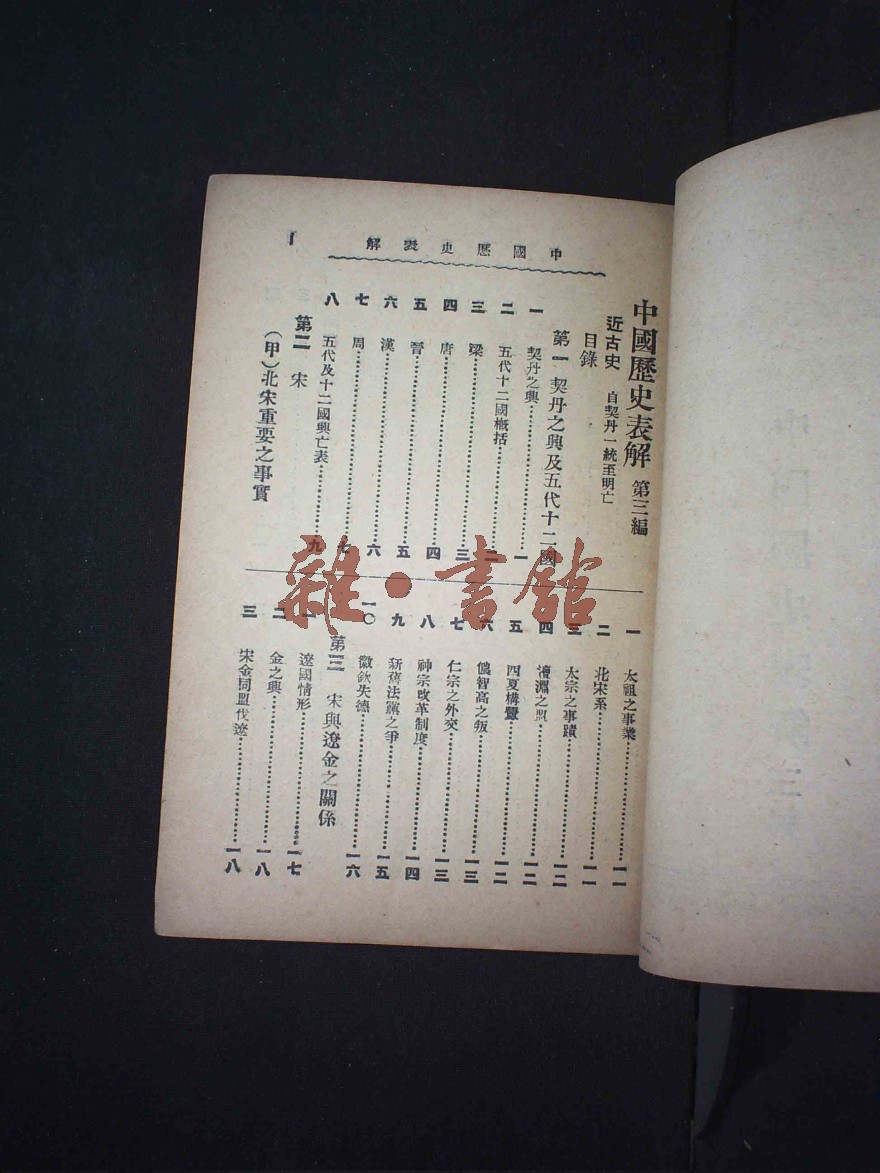 中國歷史表解
一
中國歷史表解 第三編
近古史 自契丹一統至明亡
目錄
第一 契丹之興及五代十二國
一 契丹之興 一
二 五代十二國概括 二
三 梁 三
四 唐 四
五 晉 五
六 漢 六
七 周 七
八 五代及十二國興亡表 九
第二 宋
(甲)北宋重要之事實
一 太祖之事業 一一
二 北宋系 一一
三 太宗之事蹟 一二
四 澶淵之盟 一二
五 西夏構釁 一二
六 儂智高之叛 一三
七 仁宗之外交 一三
八 神宗改革制度 一四
九 新舊法黨之爭 一五
一〇 徽欽失德 一六
第三 宋與遼金之關係
一 遼國情形 一七
二 金之興 一八
三 宋金同盟伐遼 一八
雜·書館